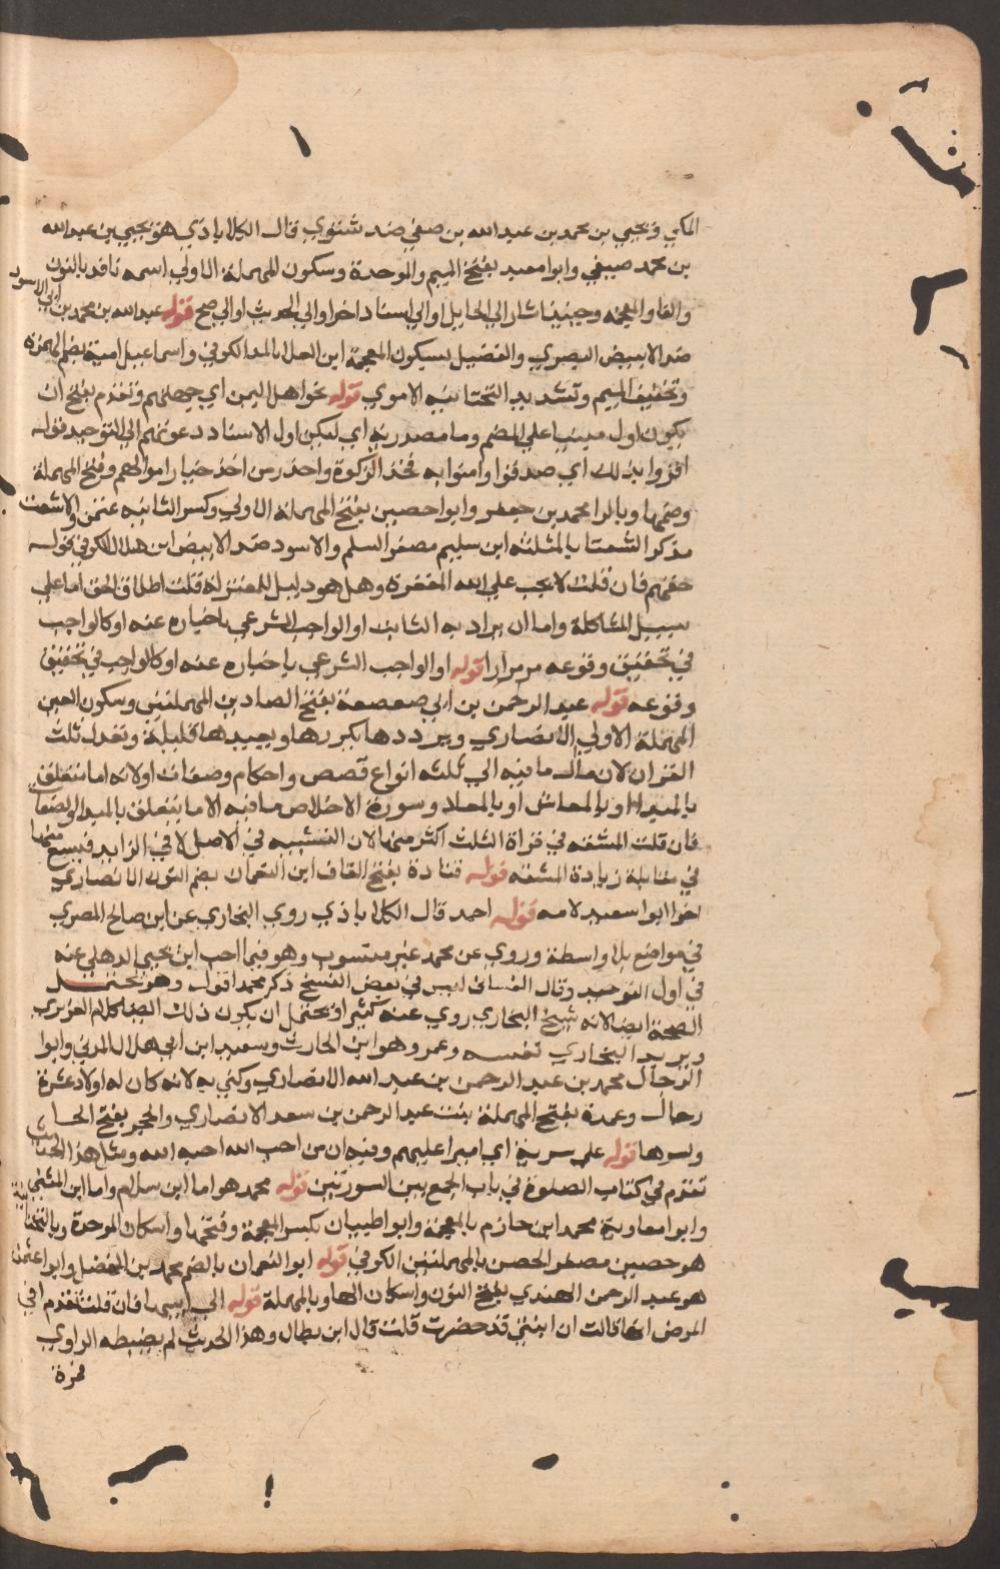 المكي ويحيى بن محمد بن عبد الله بن صفي ضد شتوي قال الكلاباذي هو يحيى بن عبد الله
بن محمد صيفي وابو معبد بفتح الميم والموحدة وسكون المهملة الاولي اسمه نافد بالنون
والفا والمعجمة وحينئذ اشار الي الحايل او الي اسناد اخر او الي الحديث او الي صح قوله عبد الله بن محمد بن ابي الاسود
ضد الابيض البصري والفضيل بسكون المعجمة ابن العلا بالمد الكوفي واسماعيل امية بضم الهمزة
وتخفيف الميم وتشديد التحتانية الاموي قوله نحو اهل اليمن اي جهتهم وتقدم بفتح ان
يكون اول مبنيا علي الضم وما مصدرية اي ليكن اول الاسناد دعوتهم الي التوحيد قوله
اقروا بذلك اي صدقوا وامنوا به فخذ الزكوة واحذر من اخذ خيار اموالهم وفتح المهملة
وضمها وبالرا محمد بن جعفر وابو حصين بفتح المهملة الاولي وكسر الثانية عثمن والاشعث
مذكر الشعثا بالمثلثة ابن سليم مصغر السلم والاسود ضد الابيض ابن هلال الكوفي قوله
حقهم فان قلت لا يجب علي الله المغفرة وهل هو دليل للمعتزلة قلت اطلاق الحق اما علي
سبيل المشاكلة واما ان يراد به الثابت او الواجب الشرعي باخباره عنه او كالواجب
في تحقيق وقوعه مر مرارا قوله او الواجب الشرعي باخباره عنه او كالواجب في تحقيق
وقوعه قوله عبد الرحمن بن ابي صعصعة بفتح الصادين المهملتين وسكون العين
المهملة الاولي الانصاري ويرددها يكررها ويعيدها قليلة وتعدل ثلث
القران لان مآل ما فيه الي ثلثة انواع قصص واحكام وصفات او لانه اما يتعلق
بالمبدا او بالمعاش او بالمعاد وسورة الاخلاص ما فيه الا ما يتعلق بالمبدا والصفات
فان قلت المشقة في قراة الثلث اكثر منها لان التشبيه في الاصل لا في الزايد فيسع منها
في مقابلة زيادة المشقة قوله قتادة بفتح القاف ابن النعمان بضم النون الانصاري
اخو ابو سعيد لامه قوله احمد قال الكلاباذي روي البخاري عن ابن صالح المصري
في مواضع بلا واسطة وروي عن محمد غير منسوب وهو فيما احب ابن يحيى الذهلي عنه
في اول التوحيد وقال الغساني ليس في بعض النسخ ذكر محمد اقول وهو يحتمل
الصحة ايضا لانه شيخ البخاري روي عنه كثيرا ويحتمل ان يكون ذلك ايضا كلام الفربري
ويريد البخاري نفسه وعمرو هو ابن الحارث وسعيد ابن ابي هلال المدني وابو
الرجال محمد بن عبد الرحمن بن عبد الله الانصاري وكني به لانه كان له اولاد عشرة
رجال وعمرة بفتح المهملة بنت عبد الرحمن بن سعد الانصاري والحجر بفتح الحا
وكسرها قوله علي سرية اي اميرا عليهم وفيه ان من احب الله احبه الله ومثل هذا الحديث
تقدم في كتاب الصلوة في باب الجمع بين السورتين قوله محمد هو اما ابن سلام واما ابن المثني
وابو معاوية محمد ابن حازم بالمعجمة وابو ظبيان بكسر المعجمة وفتحها واسكان الموحدة وبالتحتانية
هو حصين مصغر الحصن بالمهملتين الكوفي قوله ابو النعمان بالضم محمد بن الفضل وابو اعثمان
هو عبد الرحمن الهندي بفتح النون واسكان الها وبالمهملة قوله الي ابنها فان قلت تقدم في
المرض انها قالت ان ابنتي قد حضرت قلت قال ابن بطال وهذا الحديث لم يضبطه الراوي
فمرة